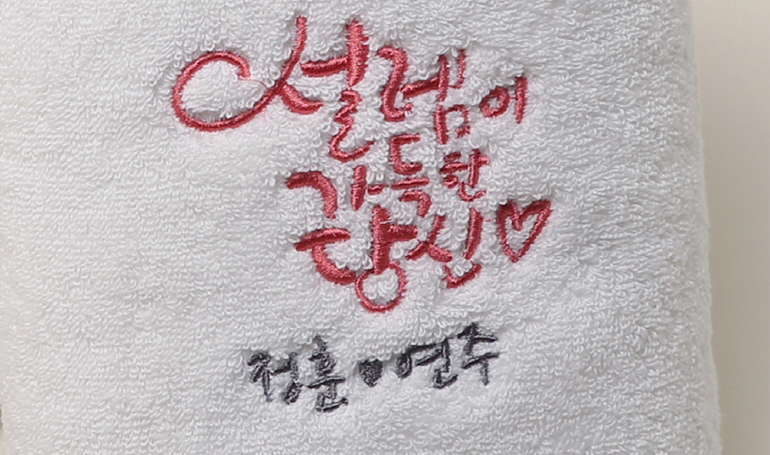 설렘이
가득한
당신♡
정훈♥연수